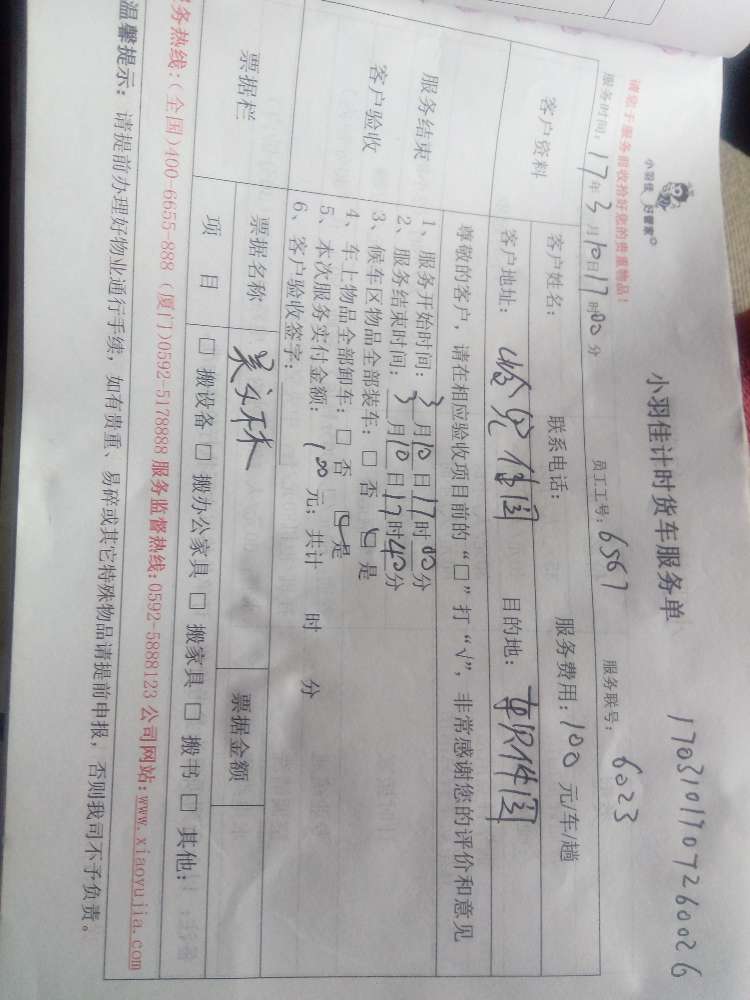 小羽佳 好管家
请您于服务前收拾好您的贵重物品!
小羽佳计时货车服务单
1703101707260026
服务时间: 17年3月10日17时00分 员工工号: 6567 服务联号: 6023
客户资料
客户姓名: 联系电话: 服务费用: 100 元/车/趟
客户地址: 目的地:
服务结束
客户验收
尊敬的客户,请在相应验收项目前的“□”打“√”,非常感谢您的评价和意见
1、服务开始时间: 3月10日17时00分
2、服务结束时间: 3月10日17时40分
3、候车区物品全部装车: □ 否 ☑ 是
4、车上物品全部卸车: □ 否 ☑ 是
5、本次服务实付金额: 100 元; 共计 时 分
6、客户验收签字:
票据栏
票据名称 票据金额
项 目 □ 搬设备 □ 搬办公家具 □ 搬家具 □ 搬书 □ 其他:
务热线:(全国)400-6655-888 (厦门)0592-5178888 服务监督热线:0592-5888123 公司网站:www.xiaoyujia.com
温馨提示: 请提前办理好物业通行手续, 如有贵重、易碎或其它特殊物品请提前申报, 否则我司不予负责。